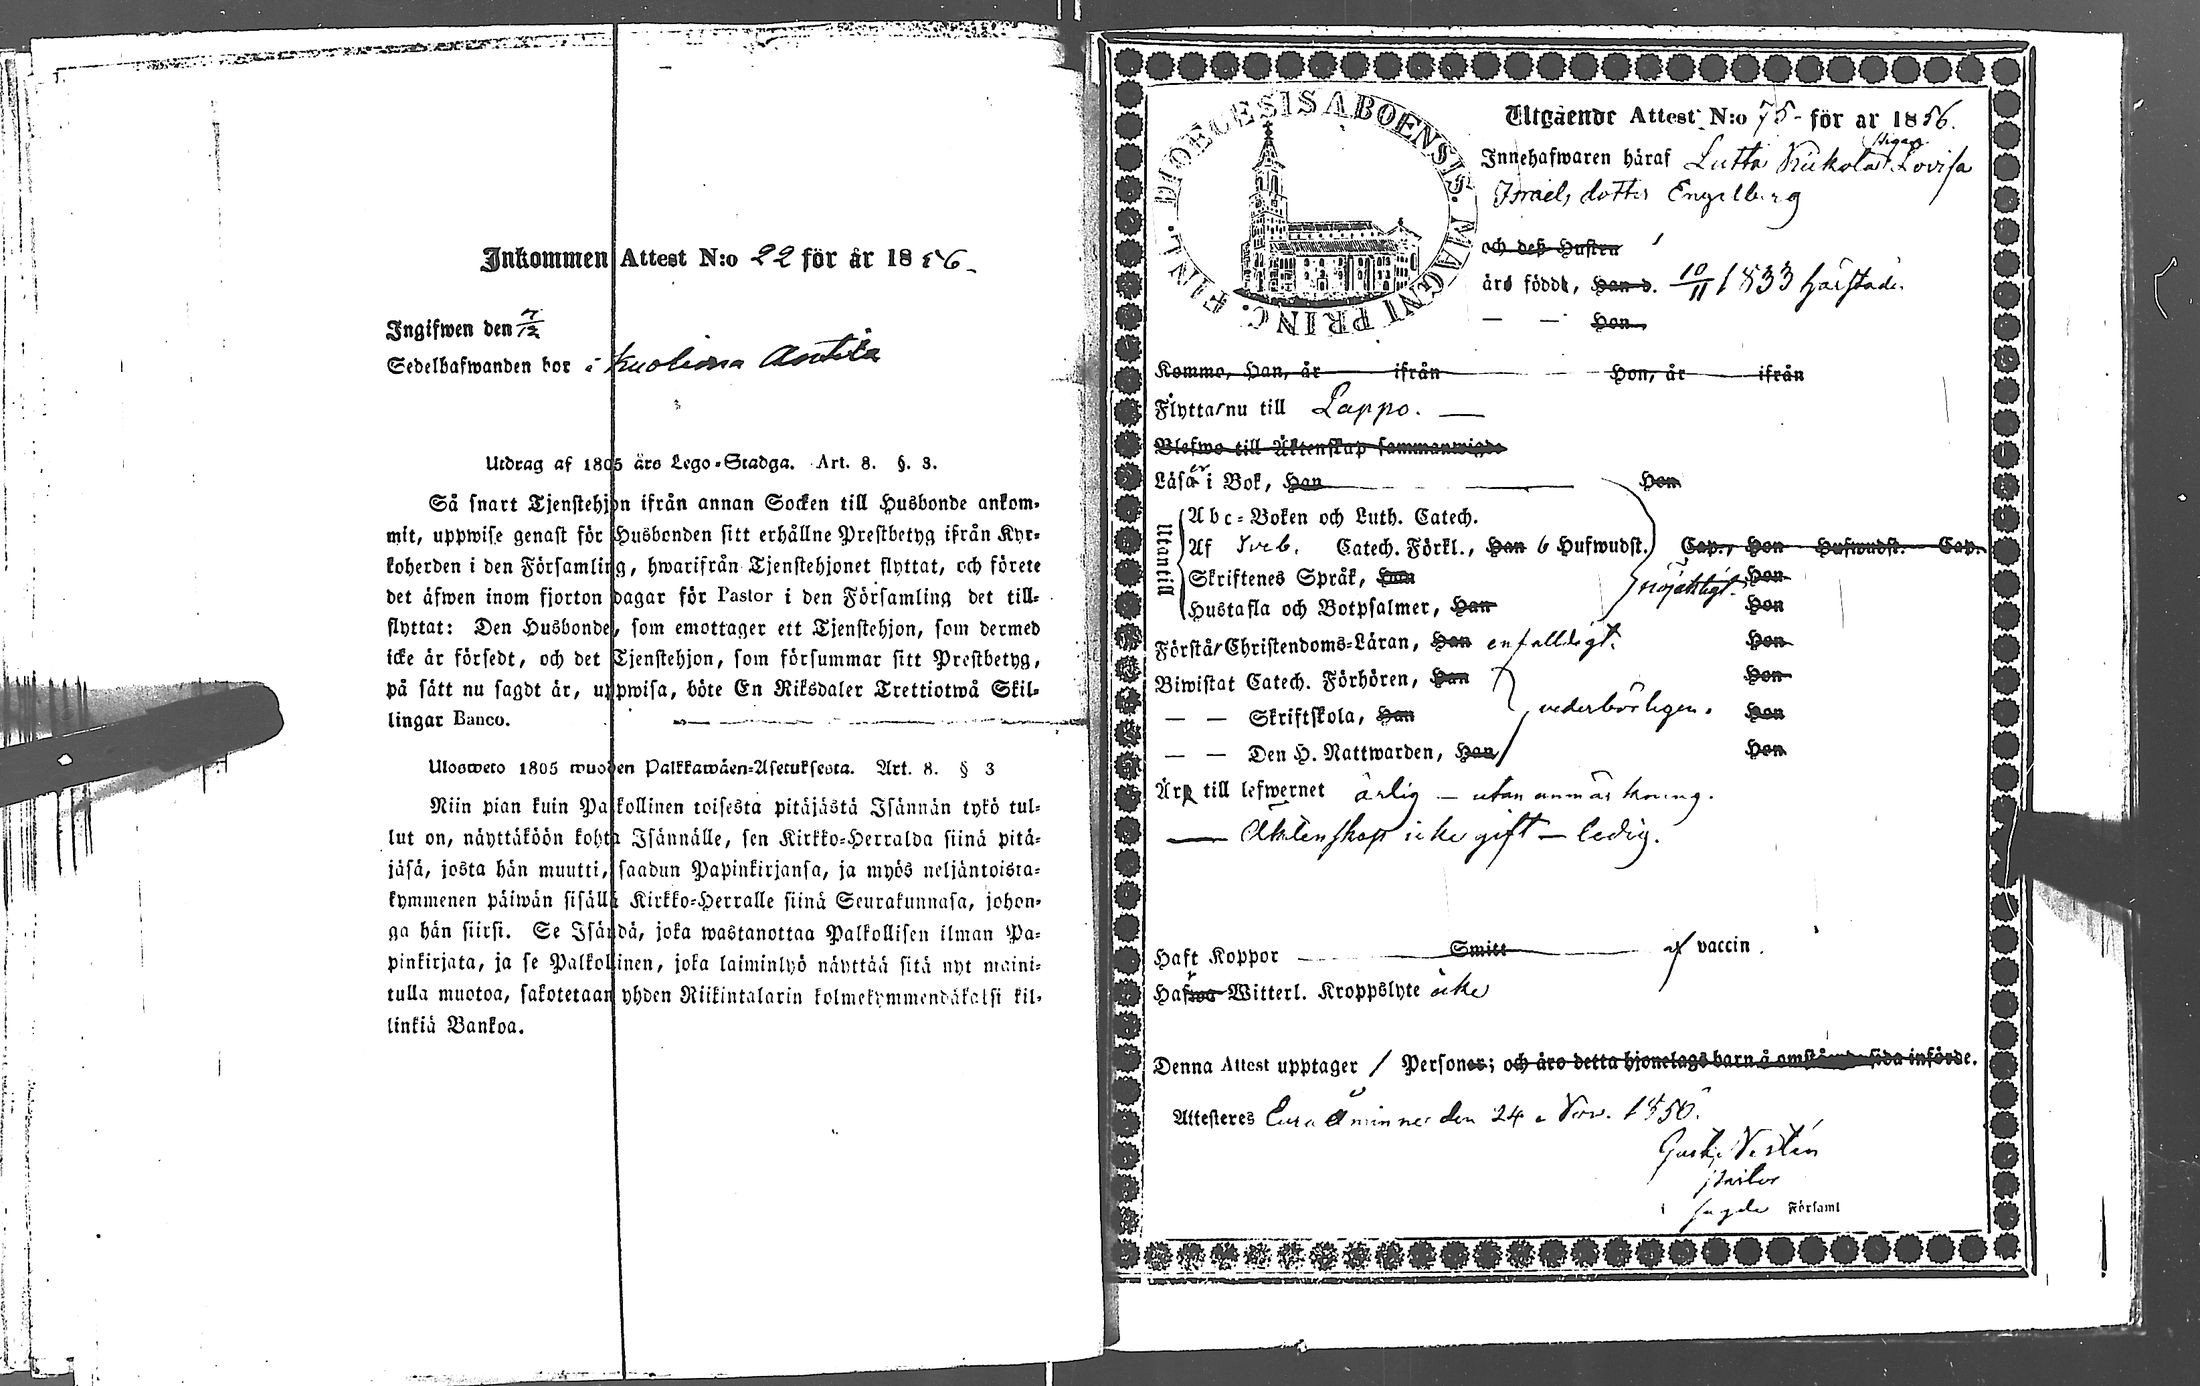 Inkommen Attest N:o 22 för år 1856.
Ingifwen den 7/12
Sedelhafwanden bor i Kuolima Antila
Utdrag af 1805 års Lego-Stadga. Art. 8. §. 3.
Så snart Tjenstehjon ifrån annan Socken till Husbonde ankom-
mit, uppwise genast för Husbonden sitt erhållne Prestbetyg ifrån Kyr-
koherden i den Församling, hwarifrån Tjenstehjonet flyttat, och förete
det äfwen inom fjorton dagar för Pastor i den Församling det till-
flyttat: Den Husbonde, som emottager ett Tjenstehjon, som dermed
icke är försedt, och det Tjenstehjon, som försummar sitt Prestbetyg,
på sätt nu sagdt är, uppwisa, böte En Riksdaler Trettiotwå Skil-
lingar Banco.
Ulosweto 1805 wuoden Palkkawäen-Asetuksesta. Art. 8. § 3
Niin pian kuin Palkollinen toisesta pitäjästä Isännän tykö tul-
lut on, näyttäköön kohta Isännälle, sen Kirkko-Herralda siinä pitä-
jäsä, josta hän muutti, saadun Papinkirjansa, ja myös neljäntoista-
kymmenen päiwän sisällä Kirkko-Herralle siinä Seurakunnasa, johon-
ga hän siirsi. Se Isändä, joka wastanottaa Palkollisen ilman Pa-
pinkirjata, ja se Palkollinen, joka laiminlyö näyttää sitä nyt maini-
tulla muotoa, sakotetaan yhden Riikintalarin kolmekymmendäkaksi kil-
linkiä Bankoa.
DIOECESIS ABOENSIS. MAGNI PRINC. FINL.
Utgående Attest N:o 75 för år 1856.
Innehafwaren häraf Lutta Kukola Pigan Lovisa
Israelsdotter Engelberg
och deß Hustru
äro födde, Han d. 10/11 1833 härstädes
— — Hon
Komme, Han, år ifrån Hon, år ifrån
Flytta nu till Lappo.
Blefwo till Äktenskap sammanwigde
Läsa er i Bok, Han Hon
Utantill
Abc-Boken och Luth. Catech.
Af Sveb. Catech. Förkl., Han 6 Hufwudst. Cap., Hon Hufwudst. Cap.
Skriftenes Språk, Han nöjaktigt. Hon
Hustafla och Botpsalmer, Han Hon
Förstår Christendoms-Läran, Han enfalldigt. Hon
Biwistat Catech. Förhören, Han Hon
— — Skriftskola, Han vederbörligen. Hon
— — Den H. Nattwarden, Han Hon
Är till lefwernet ärlig — utan anmärkning.
— Äktenskap icke gift — ledig.
Haft Koppor Smitt af vaccin.
Hafwa Witterl. Kroppslyte icke
Denna Attest upptager 1 Personer; och äro detta hjonelags barn å omstående sida införde.
Attesteres Eura Åminne den 24 Nov. 1856.
Gust. Vestén
pastor
i sagde Församl